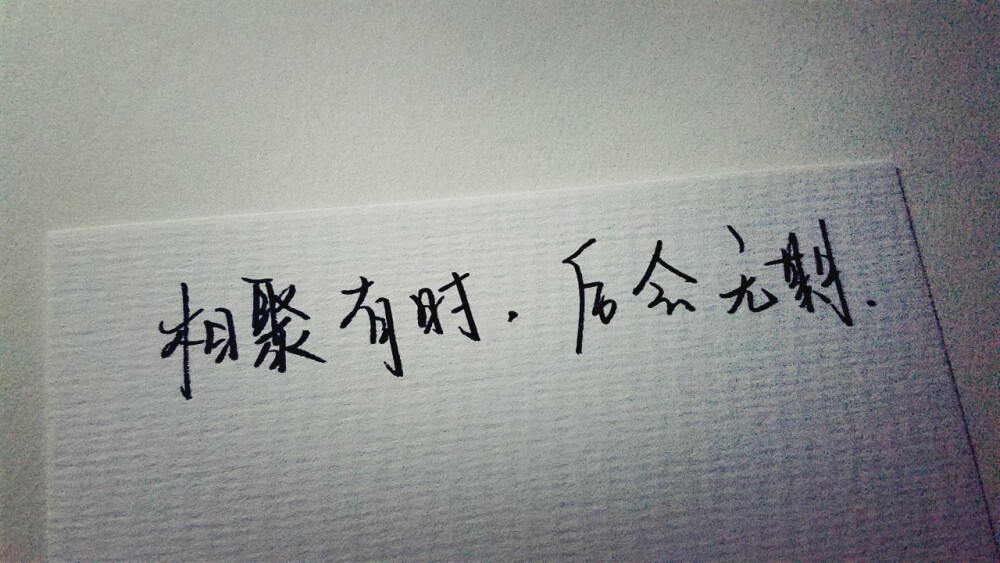 相聚有时.后会无期.